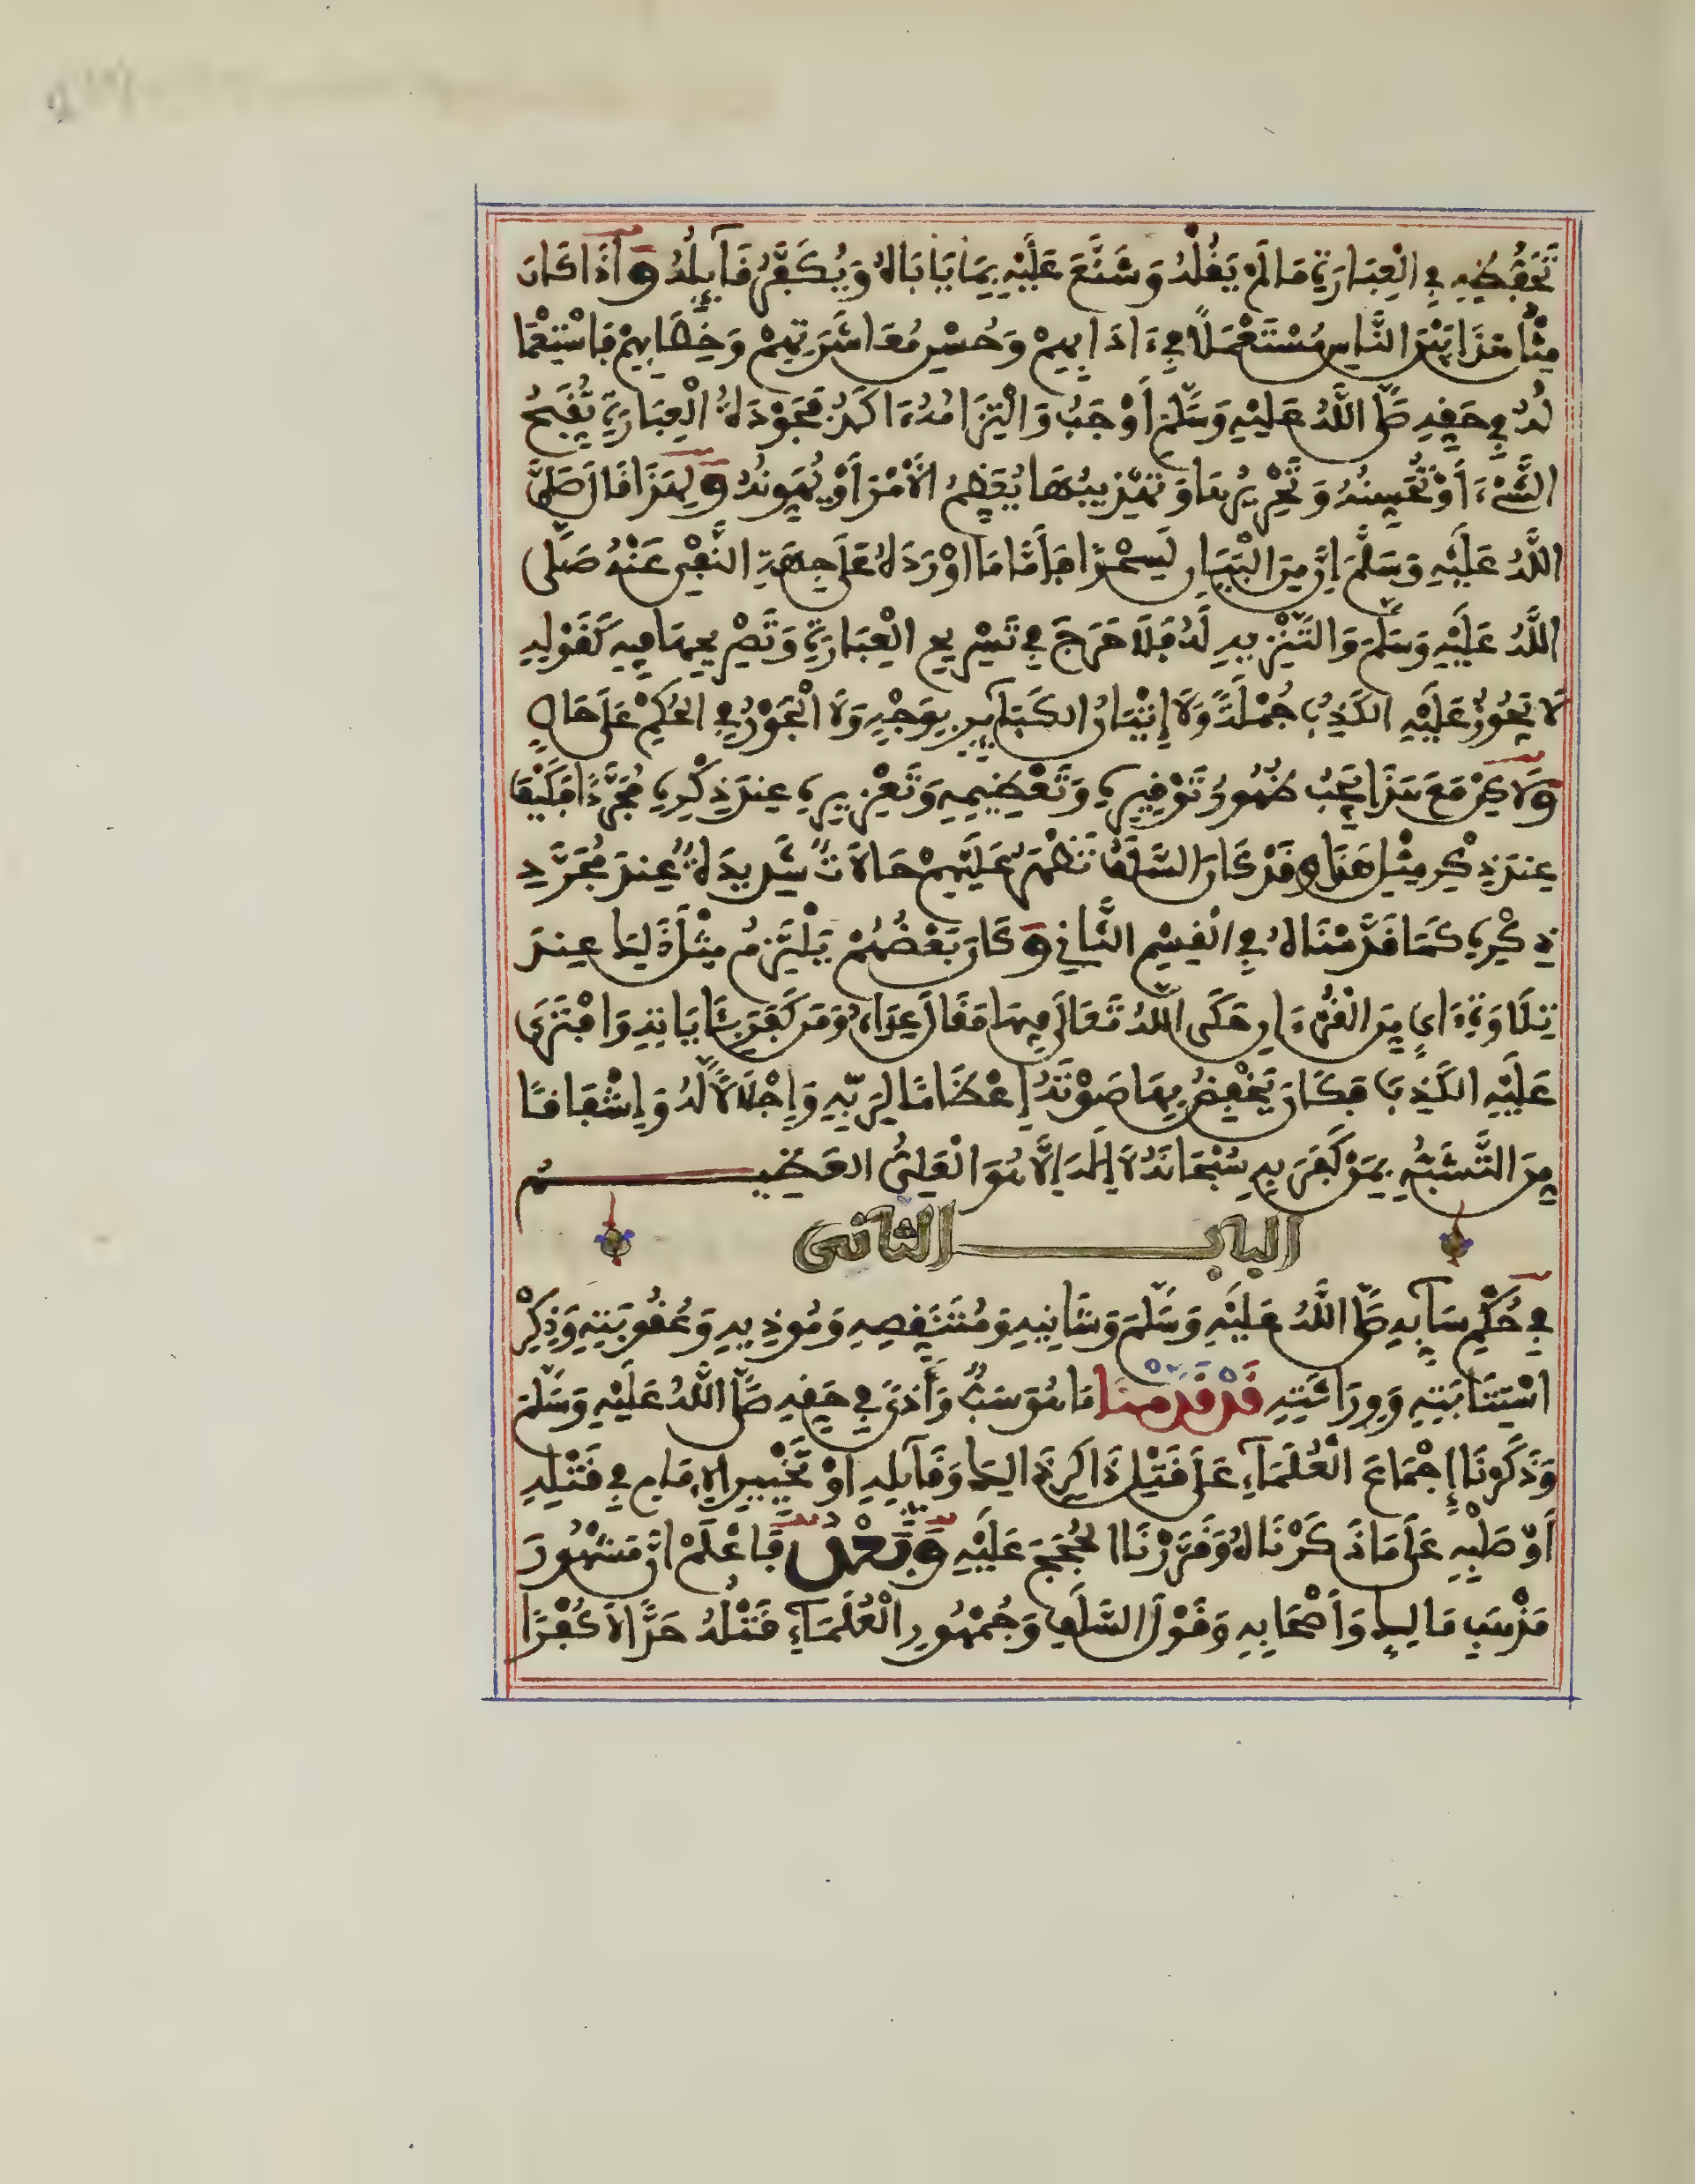 تَحَفُّظِهِ فِي الْعِبَارَةِ مَا لَمْ يَقُلْهُ وَشَنَّعَ عَلَيْهِ بِمَا يَابَاهُ وَيُكَفِّرُ قَآيِلَهُ وَإِذَا كَانَ
مِثْلُ هَذَا بَيْنَ النَّاسِ مُسْتَعْمَلًا فِي ءَادَابِهِمْ وَحُسْنِ مُعَاشَرَتِهِمْ وَخِطَابِهِمْ فَاسْتِعْمَا
لُهُ فِي حَقِّهِ صَلَّى اللَّهُ عَلَيْهِ وَسَلَّمَ أَوْجَبُ وَالْتِزَامُهُ ءَاكَدُ فَجَوْدَةُ الْعِبَارَةِ تُقَبِّحُ
الشَّيْءَ أَوْ تُحَسِّنُهُ وَتَحْرِيرُهَا وَتَهْذِيبُهَا يُعَظِّمُ الْأَمْرَ أَوْ يُهَوِّنُهُ وَلِهَذَا قَالَ صَلَّى
اللَّهُ عَلَيْهِ وَسَلَّمَ إِنَّ مِنَ الْبَيَانِ لَسِحْرًا فَأَمَّا مَا اوْرَدَهُ عَلَى جِهَةِ النَّفْيِ عَنْهُ صَلَّى
اللَّهُ عَلَيْهِ وَسَلَّمَ وَالتَّنْزِيهِ لَهُ فَلَا حَرَجَ فِي تَسْرِيحِ الْعِبَارَةِ وَتَصْرِيحِهَا فِيهِ كَقَوْلِهِ
لَا يَجُوزُ عَلَيْهِ الْكَذِبُ جُمْلَةً وَلَا إِتْيَانُ الْكَبَآيِرِ بِوَجْهٍ وَلَا الْجَوْرُ فِي الْحُكْمِ عَلَى حَالٍ
وَلَاكِنْ مَعَ هَذَا يَجِبُ ظُهُورُ تَوْقِيرِهِ وَتَعْظِيمِهِ وَتَعْزِيرِهِ عِنْدَ ذِكْرِهِ مُجَرَّدًا فَكَيْفَ
عِنْدَ ذِكْرِ مِثْلِ هَذَا وَقَدْ كَانَ السَّلَفُ تَظْهَرُ عَلَيْهِمْ حَالَاتٌ شَدِيدَةٌ عِنْدَ مُجَرَّدِ
ذِكْرِهِ كَمَا قَدَّمْنَاهُ فِي الْقِسْمِ الثَّانِي وَكَانَ بَعْضُهُمْ يَلْتَزِمُ مِثْلَ ذَلِكَ عِنْدَ
تِلَاوَةِ ءَايٍ مِنَ الْقُرْءَانِ حَكَى اللَّهُ تَعَالَى فِيهَا مَقَالَ عِدَاهُ وَمَنْ كَفَرَ بِـَٔايَاتِهِ وَافْتَرَى
عَلَيْهِ الْكَذِبَ فَكَانَ يَخْفِضُ بِهَا صَوْتَهُ إِعْظَامًا لِرَبِّهِ وَإِجْلَالًا لَهُ وَإِشْفَاقًا
مِنَ التَّشَبُّهِ بِمَنْ كَفَرَ بِهِ سُبْحَانَهُ لَا إِلَهَ إِلَّا هُوَ الْعَلِيُّ الْعَظِيمُ
الباب الثاني
فِي حُكْمِ سَآبِّهِ صَلَّى اللَّهُ عَلَيْهِ وَسَلَّمَ وَشَانِيهِ وَمُتَنَقِّصِهِ وَمُوذِيهِ وَعُقُوبَتِهِ وَذِكْرِ
اسْتِتَابَتِهِ وَوِرَاثَتِهِ قَدْ قَدَّمْنَا مَا هُوَ سَبٌّ وَأَذًى فِي حَقِّهِ صَلَّى اللَّهُ عَلَيْهِ وَسَلَّمَ
وَذَكَرْنَا إِجْمَاعَ الْعُلَمَآءِ عَلَى قَتْلِ ذَاكِرِ ذَالِكَ وَقَآيِلِهِ اوْ تَخْيِيرِ الْإِمَامِ فِي قَتْلِهِ
أَوْ صَلْبِهِ عَلَى مَا ذَكَرْنَاهُ وَقَرَّرْنَا الْحُجَجَ عَلَيْهِ وَبَعْدُ فَاعْلَمْ انَّ مَشْهُورَ
مَذْهَبِ مَالِكٍ وَأَصْحَابِهِ وَقَوْلَ السَّلَفِ وَجُمْهُورِ الْعُلَمَآءِ قَتْلُهُ حَدًّا لَا كُفْرًا